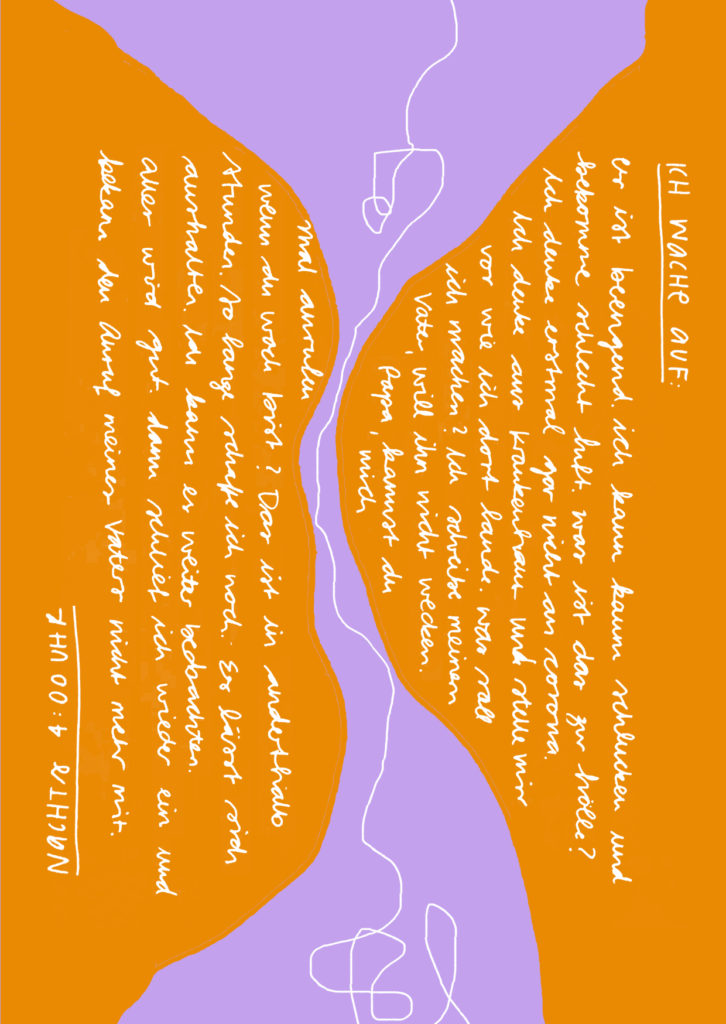 ICH WACHE AUF:
er ist beengend. ich kann kaum schlucken und
bekomme schlecht luft. was ist das zur hölle?
ich denke erstmal gar nicht an corona.
Ich denke ans Krankenhaus und stelle mir
vor wie ich dort lande. was soll
ich machen? Ich schreibe meinem
Vater, will ihn nicht wecken.
Papa, kannst du
mich
mal anrufen
wenn du wach bist? Das ist in anderthalb
Stunden. so lange schaffe ich noch. Es lässt sich
aushalten. Ich kann es weiter beobachten.
alles wird gut. dann schlief ich wieder ein und
bekam den Anruf meines Vaters nicht mehr mit.
NACHTS 4:00 UHR